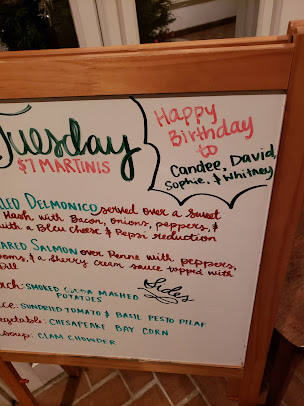 Tuesday
$7 MARTINIS
Happy
Birthday
to
Candee, David,
Sophie, & Whitney
DELMONICO served over a Sweet
Hash with Bacon, onions, peppers, &
with a Bleu cheese & Pepsi reduction
SALMON over Penne with peppers,
& a sherry cream sauce topped with
Sides
SMOKED GOUDA MASHED
POTATOES
SUNDRIED TOMATO & BASIL PESTO PILAF
CHESAPEAKE BAY CORN
soup: CLAM CHOWDER